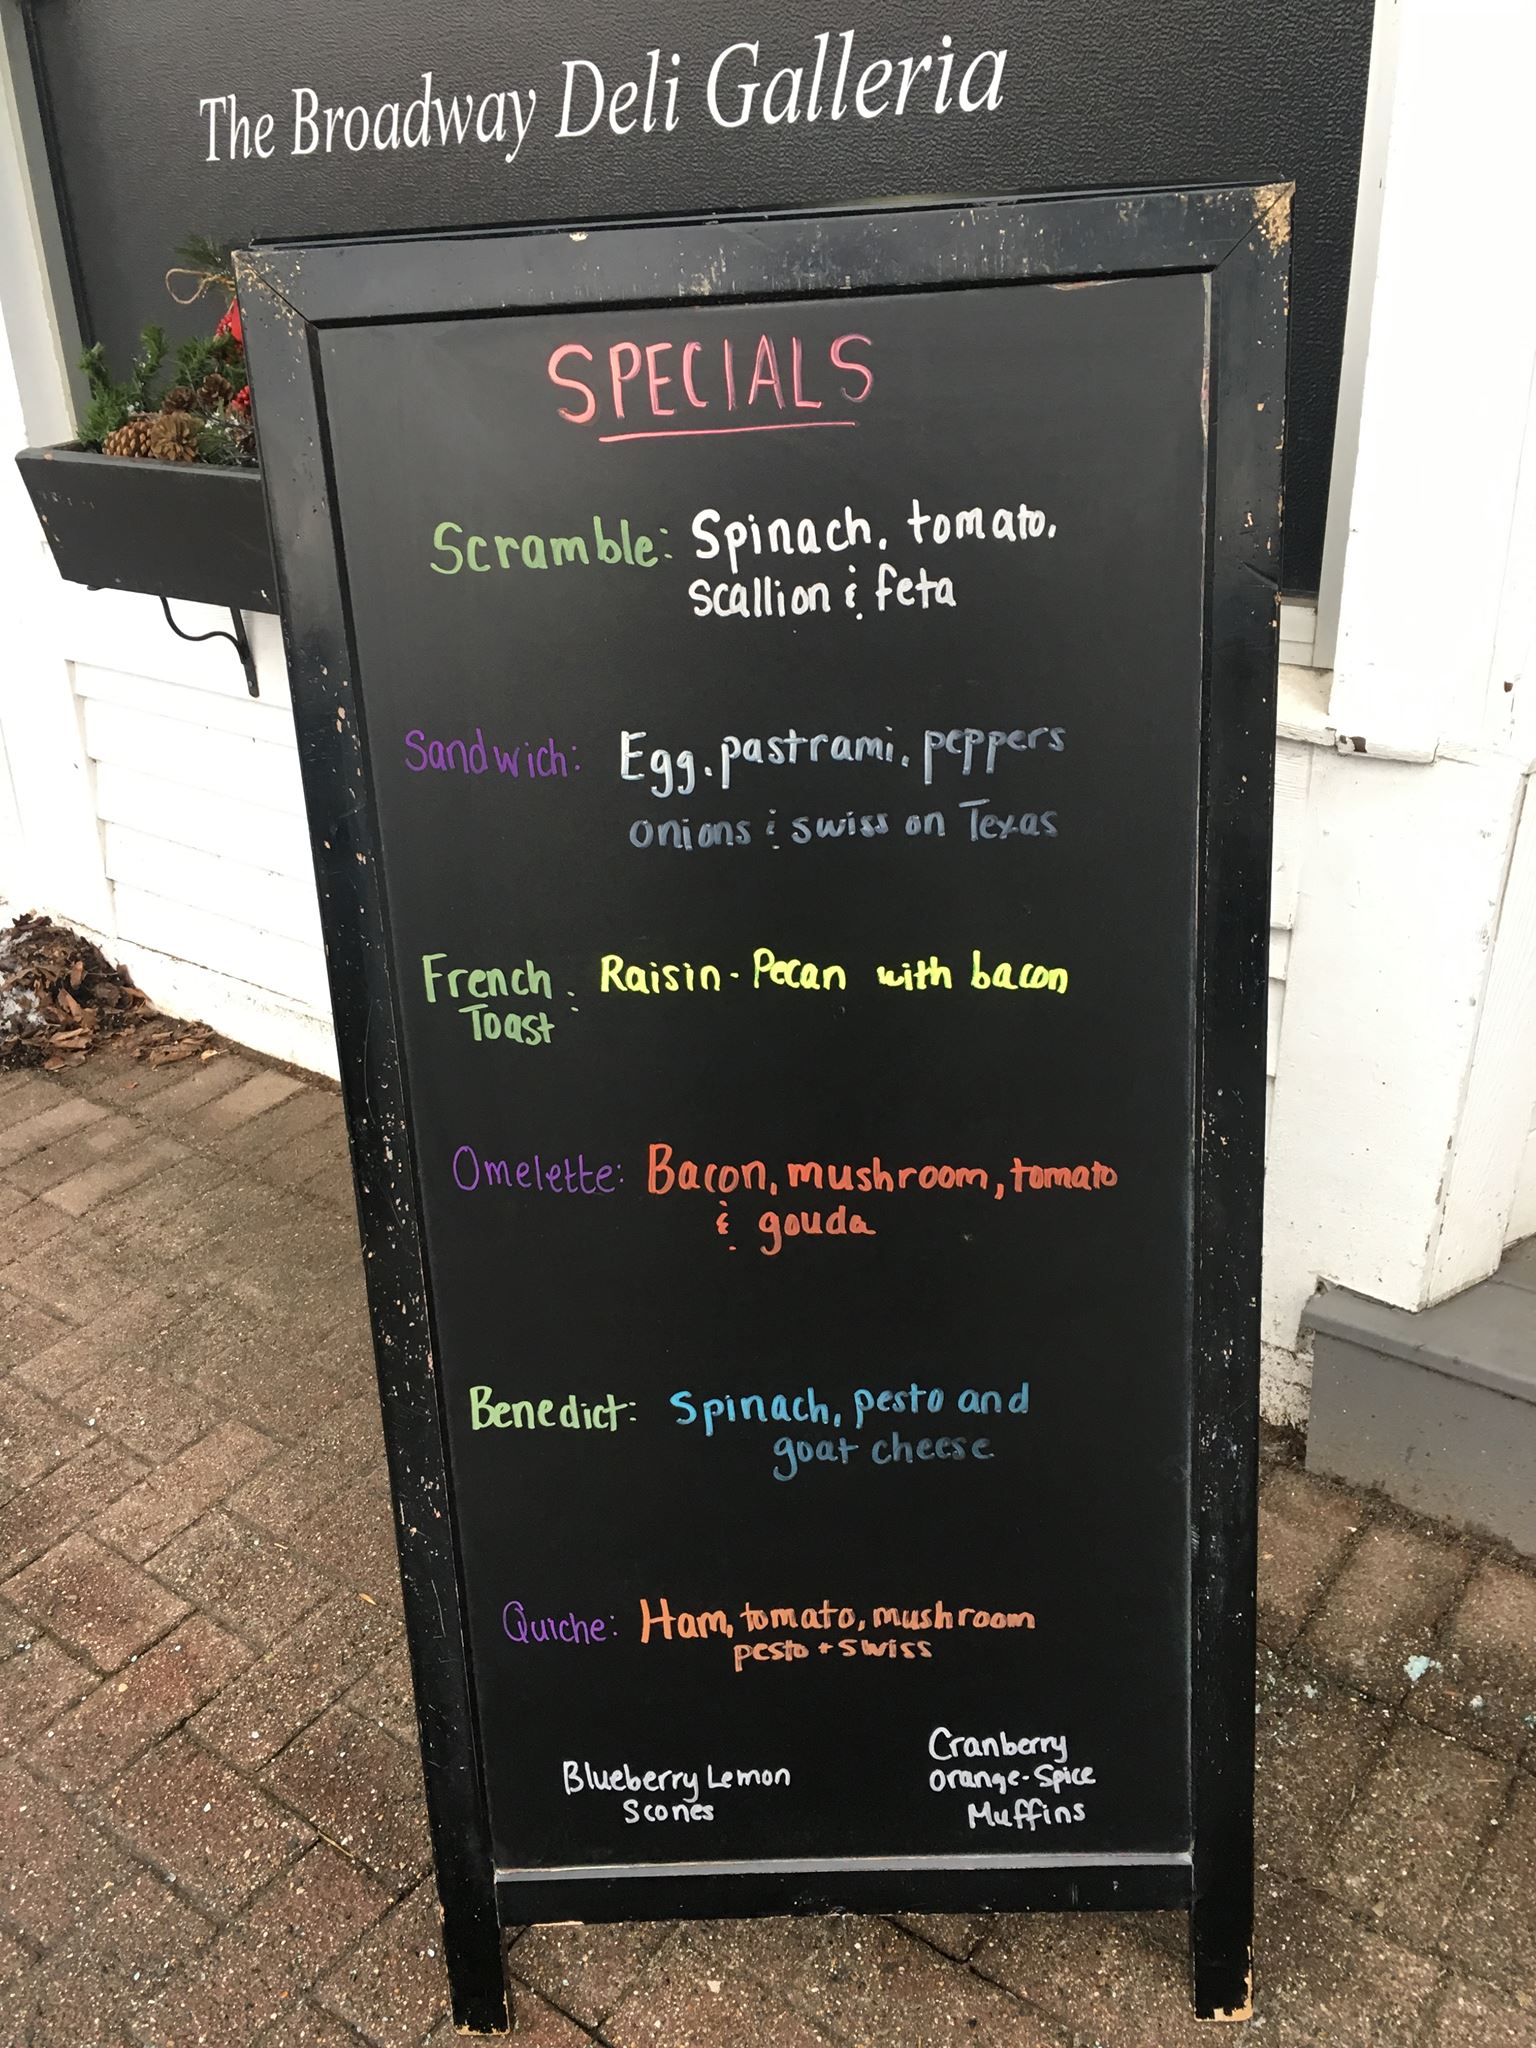 The Broadway Deli Galleria
SPECIALS
Scramble: Spinach, tomato,
scallion & feta
Sandwich: Egg, pastrami, peppers
onions & swiss on Texas
French : Raisin-Pecan with bacon
Toast
Omelette: Bacon, mushroom, tomato
& gouda
Benedict: Spinach, pesto and
goat cheese
Quiche: Ham, tomato, mushroom
pesto + swiss
Blueberry Lemon
Scones
Cranberry
Orange-Spice
Muffins